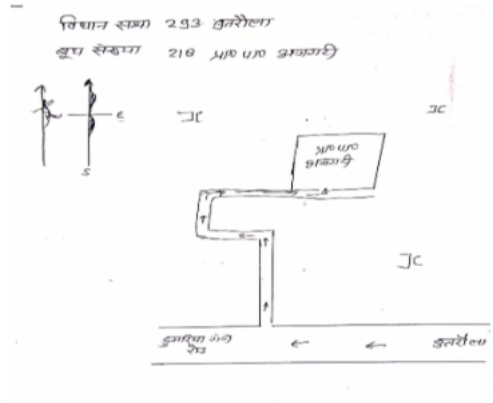 विधान सभा 293 उतरौला
बूथ संख्या 218 प्रा० पा० अजगरी
E
S
प्रा० पा०
अजगरी
डुमरिया गंज
रोड
उतरौला